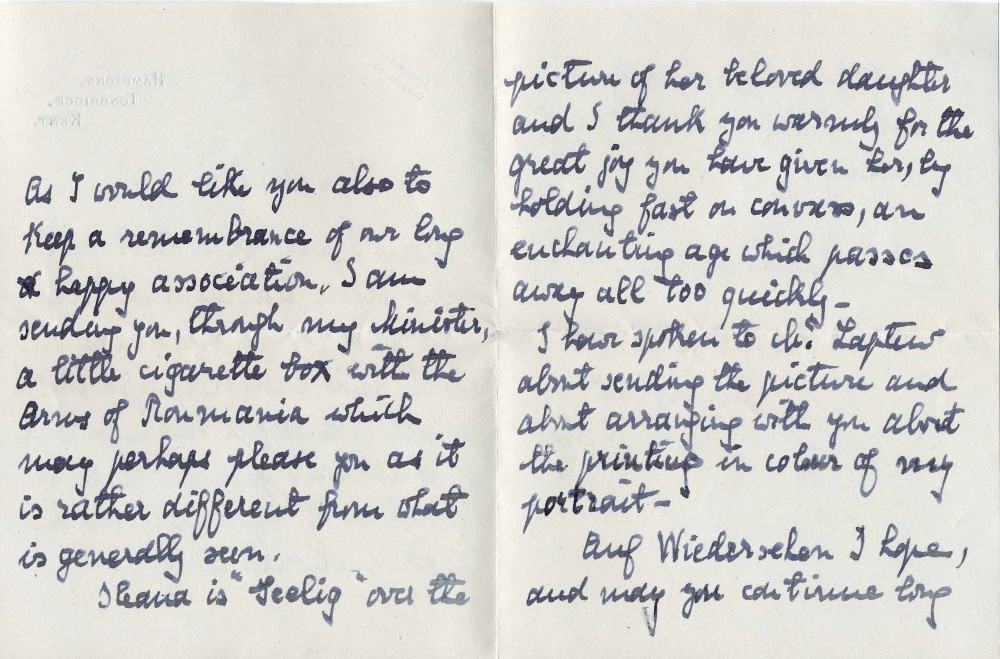 HAMPTONS,
TONBRIDGE,
KENT.
As I would like you also to
keep a remembrance of our long
& happy association, I am
sending you, through my Minister,
a little cigarette box with the
Arms of Roumania which
may perhaps please you as it
is rather different from what
is generally seen.
Ileana is "Seelig" over the
picture of her beloved daughter
and I thank you warmly for the
great joy you have given her, by
holding fast on convass, an
enchanting age which passes
away all too quickly_
I have spoken to Mr. Laptew
about sending the picture and
about arranging with you about
the printing in colour of my
portrait_
Auf Wiedersehen I hope,
and may you continue long